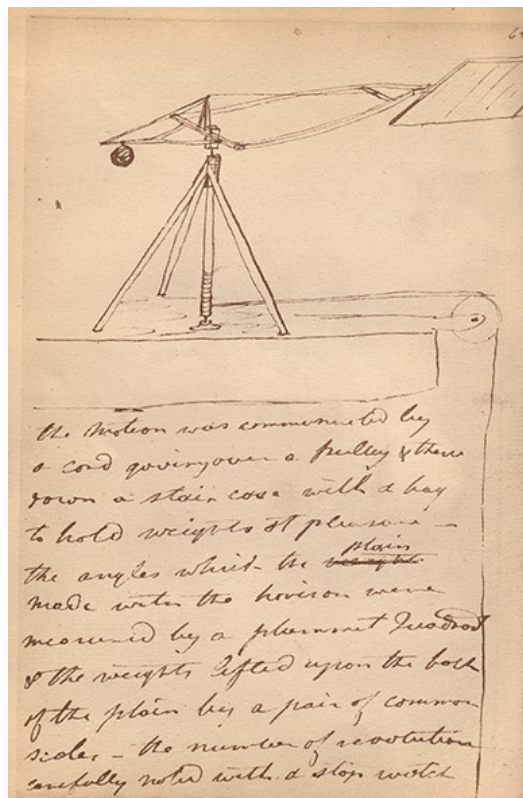 the motion was communicated by
a cord going over a pulley & then
down a stair case with a bag
to hold weights at pleasure —
the angles which the plain
made with the horison were
measured by a plummet Quadrant
& the weights lifted upon the back
of the plain by a pair of common
scales – the number of revolutions
carefully noted with a stop watch